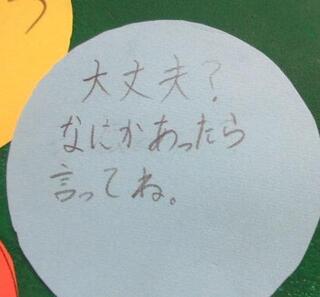 大丈夫?
なにかあったら
言ってね。